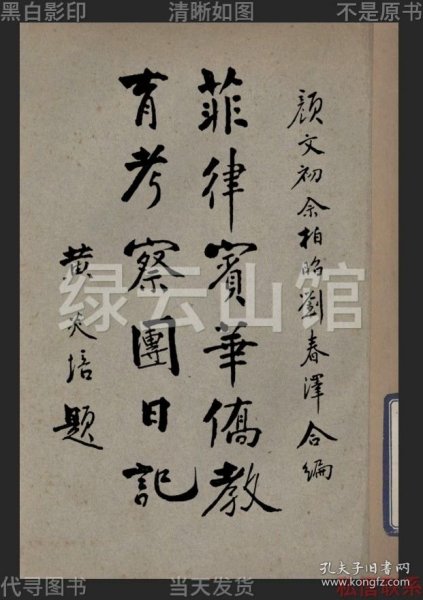 黑白影印
清晰如图
不是原书
顏文初余柏昭劉春澤合編
菲律賓華僑教
育考察團日記
黄炎培題
绿云山馆
孔夫子旧书网
www.kongfz.com
代寻图书
当天发货
私信联系